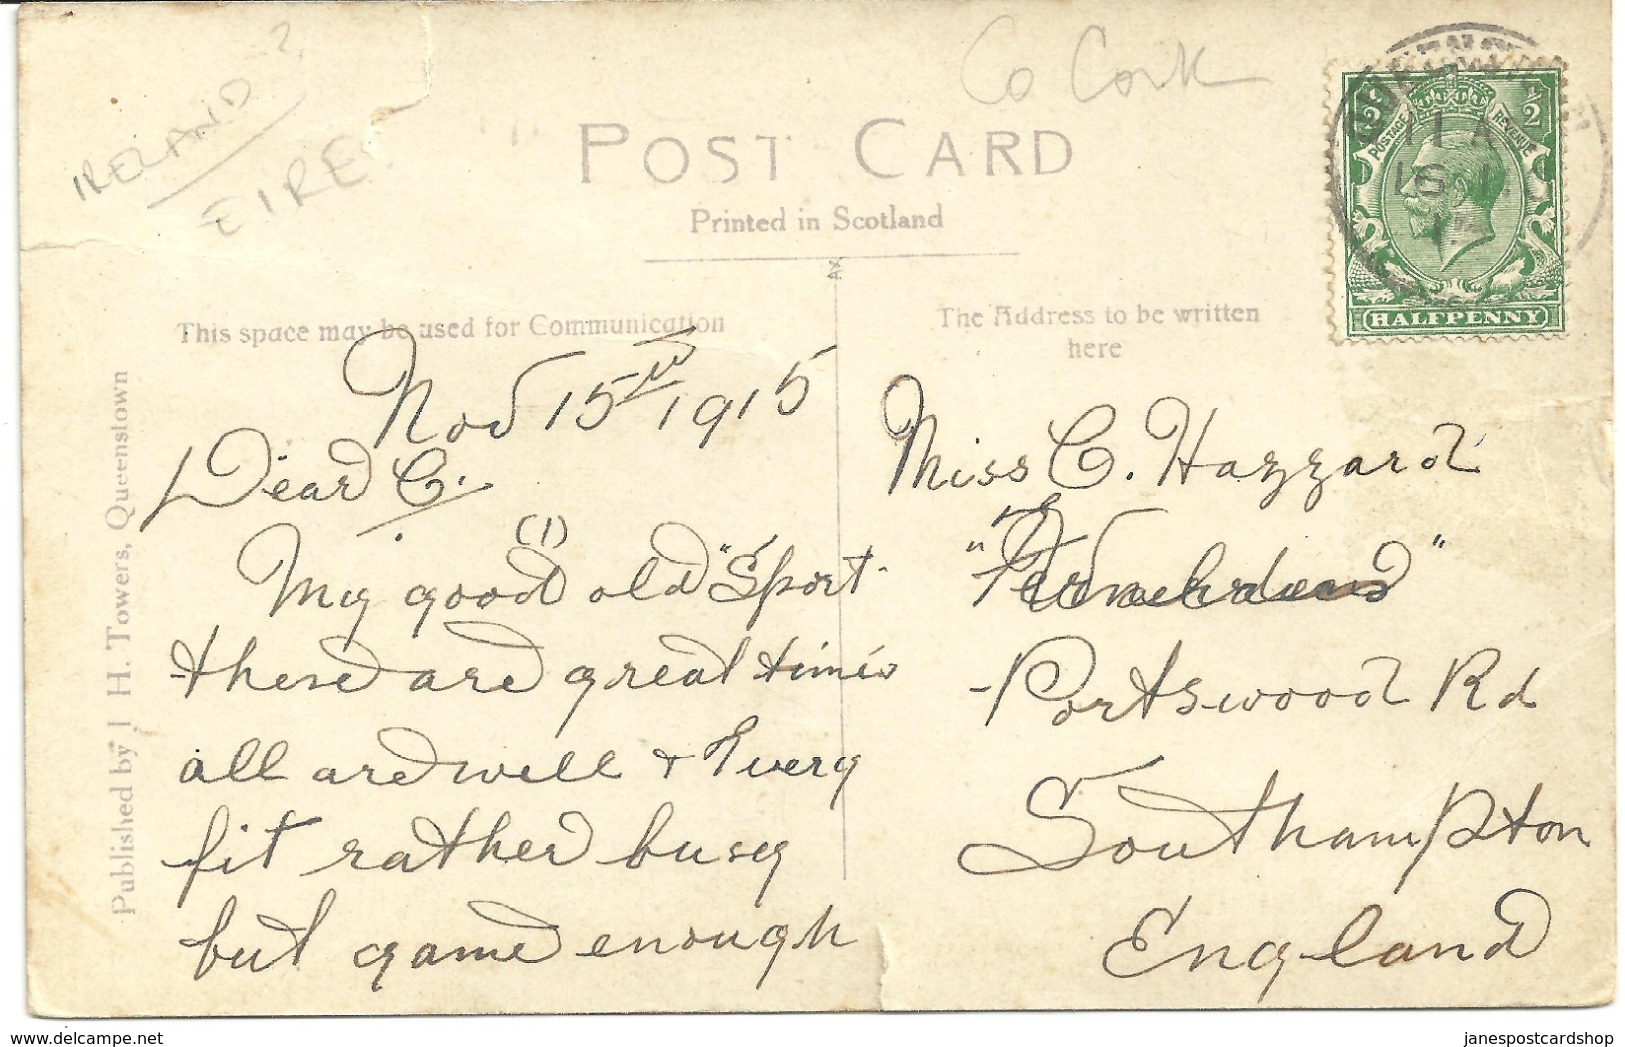 IRELAND?
EIRE
Co Cork
POST CARD
Printed in Scotland
This space may be used for Communication
The Address to be written
here
HALFPENNY
POSTAGE
REVENUE
1/2
1/2
Published by J H. Towers, Queenstown
Nov 15th 1915
Dear C.
(1)
My good old "Sport
these are great times
all are well & very
fit rather busy
but game enough
Miss C. Hazzard
Portswood Rd
Southampton
England
www.delcampe.net
janespostcardshop